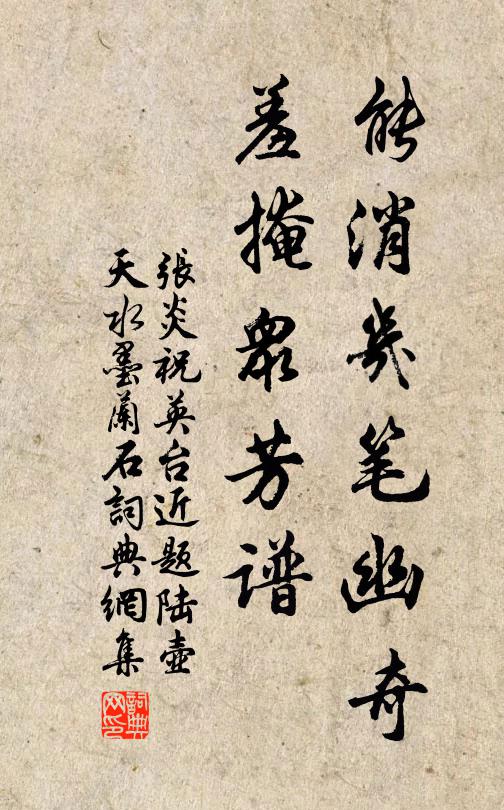 能消幾笔幽奇
羞掩眾芳谱
張炎祝英台近题陆壺
天水墨蘭石詞典網集
詞典
网印